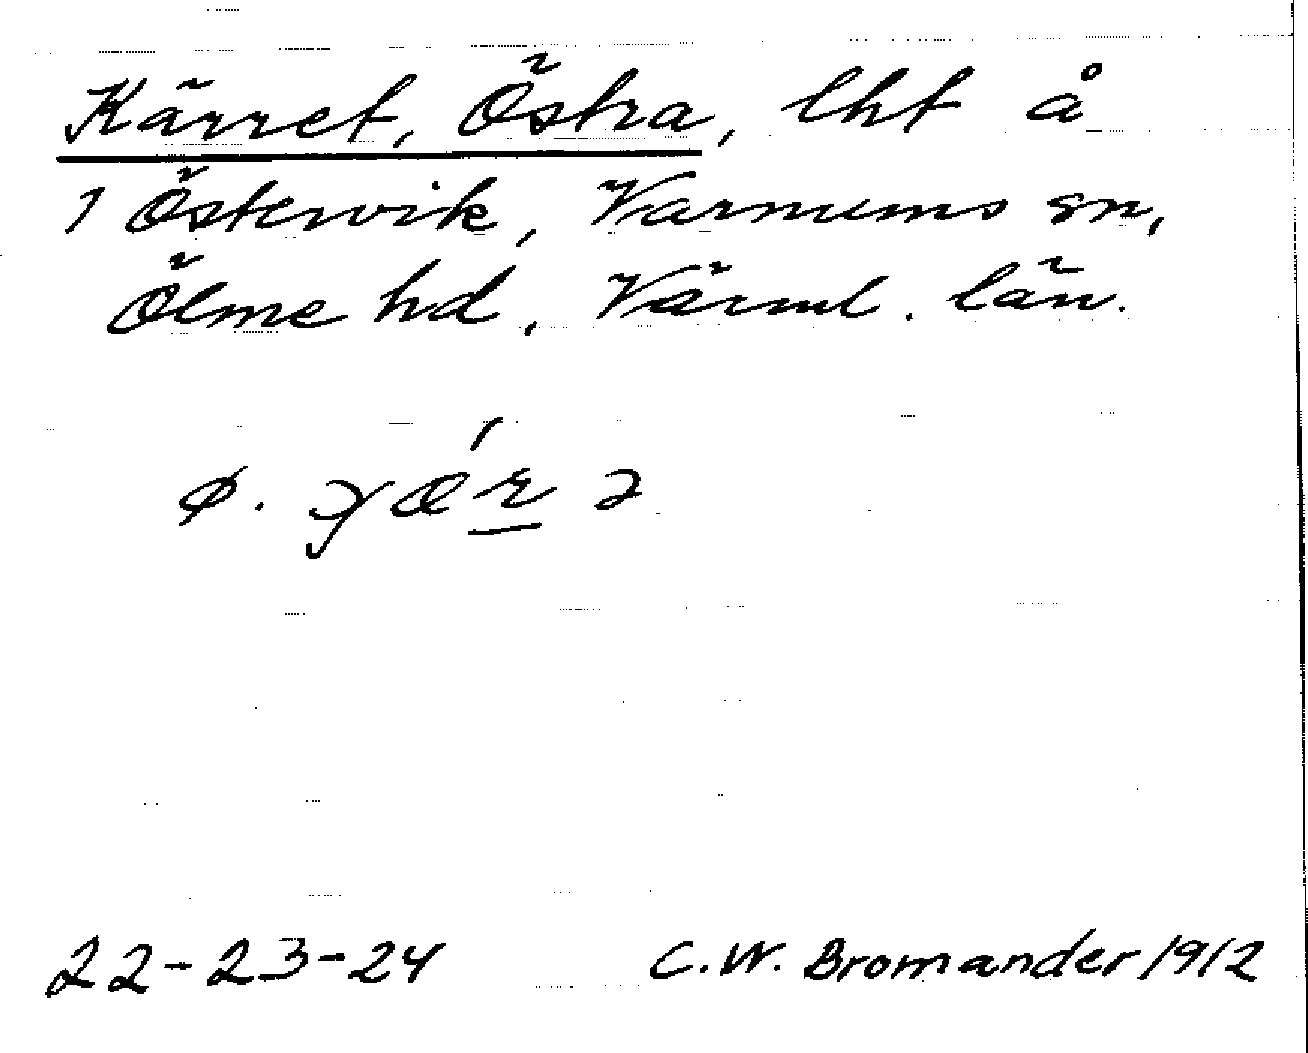 Kärret, Östra, lht å
1 Östervik, Varnums sn,
Ölme hd, Värml. län.
22-23-24 C.W. Bromander 1912